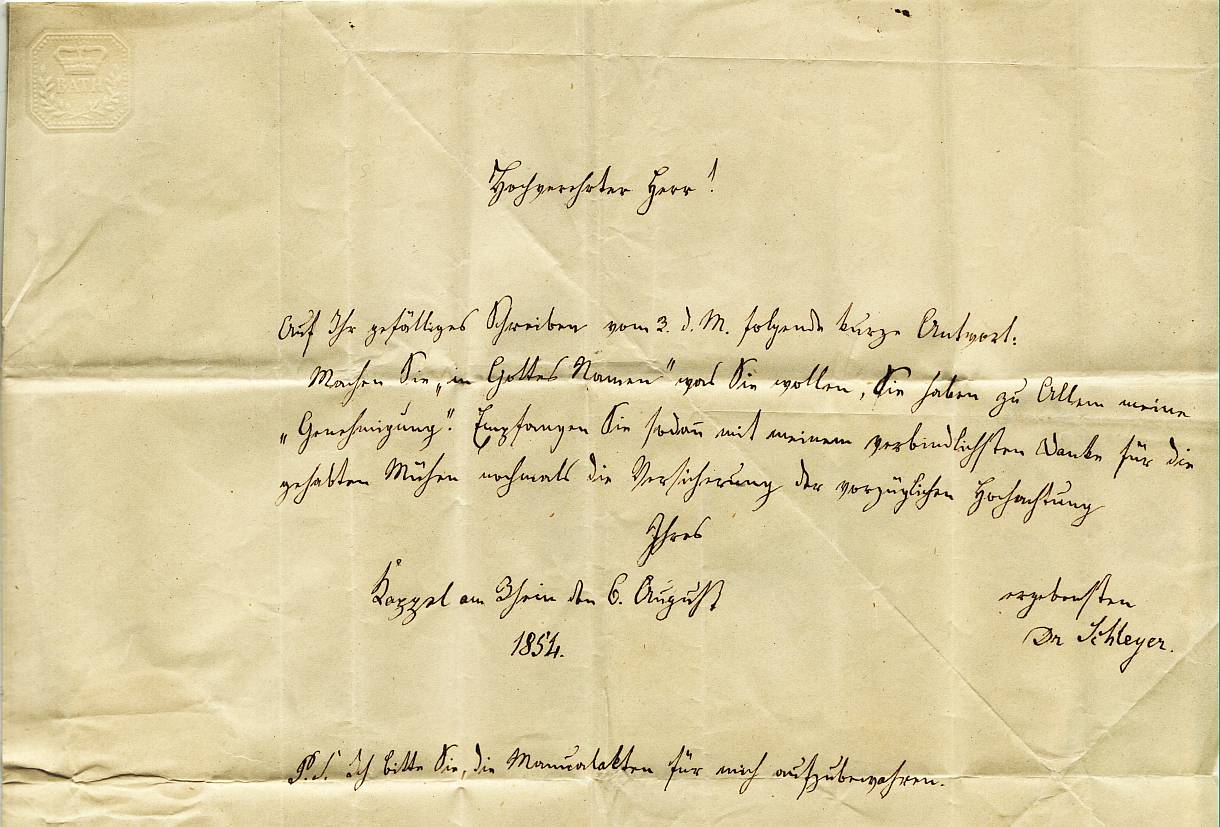 BATH
Hochverehrter Herr!
Auf Ihr gefälliges Schreiben vom 3. d. M. folgende kurze Antwort:
Machen Sie „in Gottes Namen“ was Sie wollen, Sie haben zu Allem meine
„Genehmigung“. Empfangen Sie sodañ mit meinem verbindlichsten Danke für die
gehabten Mühen nochmals die Versicherung der vorzüglichen Hochachtung
Ihres
Kappel am Rhein den 6. August
1854.
ergebensten
Dr Schleyer.
P.S. Ich bitte Sie, die Manualakten für mich aufzubewahren.